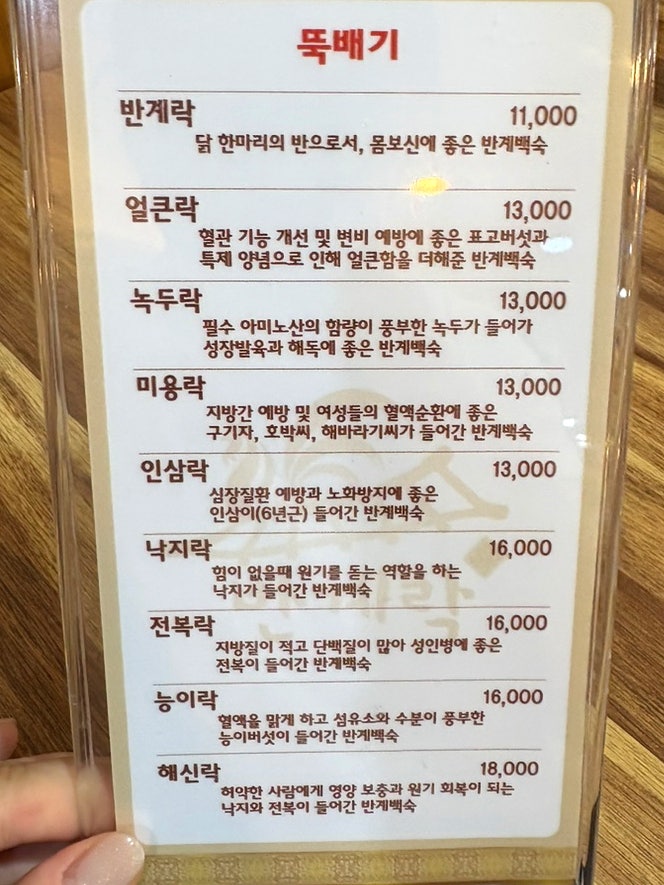 뚝배기
반계락 11,000
닭 한마리의 반으로서, 몸보신에 좋은 반계백숙
얼큰락 13,000
혈관 기능 개선 및 변비 예방에 좋은 표고버섯과
특제 양념으로 인해 얼큰함을 더해준 반계백숙
녹두락 13,000
필수 아미노산의 함량이 풍부한 녹두가 들어가
성장발육과 해독에 좋은 반계백숙
미용락 13,000
지방간 예방 및 여성들의 혈액순환에 좋은
구기자, 호박씨, 해바라기씨가 들어간 반계백숙
인삼락 13,000
심장질환 예방과 노화방지에 좋은
인삼이(6년근) 들어간 반계백숙
낙지락 16,000
힘이 없을때 원기를 돋는 역할을 하는
낙지가 들어간 반계백숙
전복락 16,000
지방질이 적고 단백질이 많아 성인병에 좋은
전복이 들어간 반계백숙
능이락 16,000
혈액을 맑게 하고 섬유소와 수분이 풍부한
능이버섯이 들어간 반계백숙
해신락 18,000
허약한 사람에게 영양 보충과 원기 회복이 되는
낙지와 전복이 들어간 반계백숙